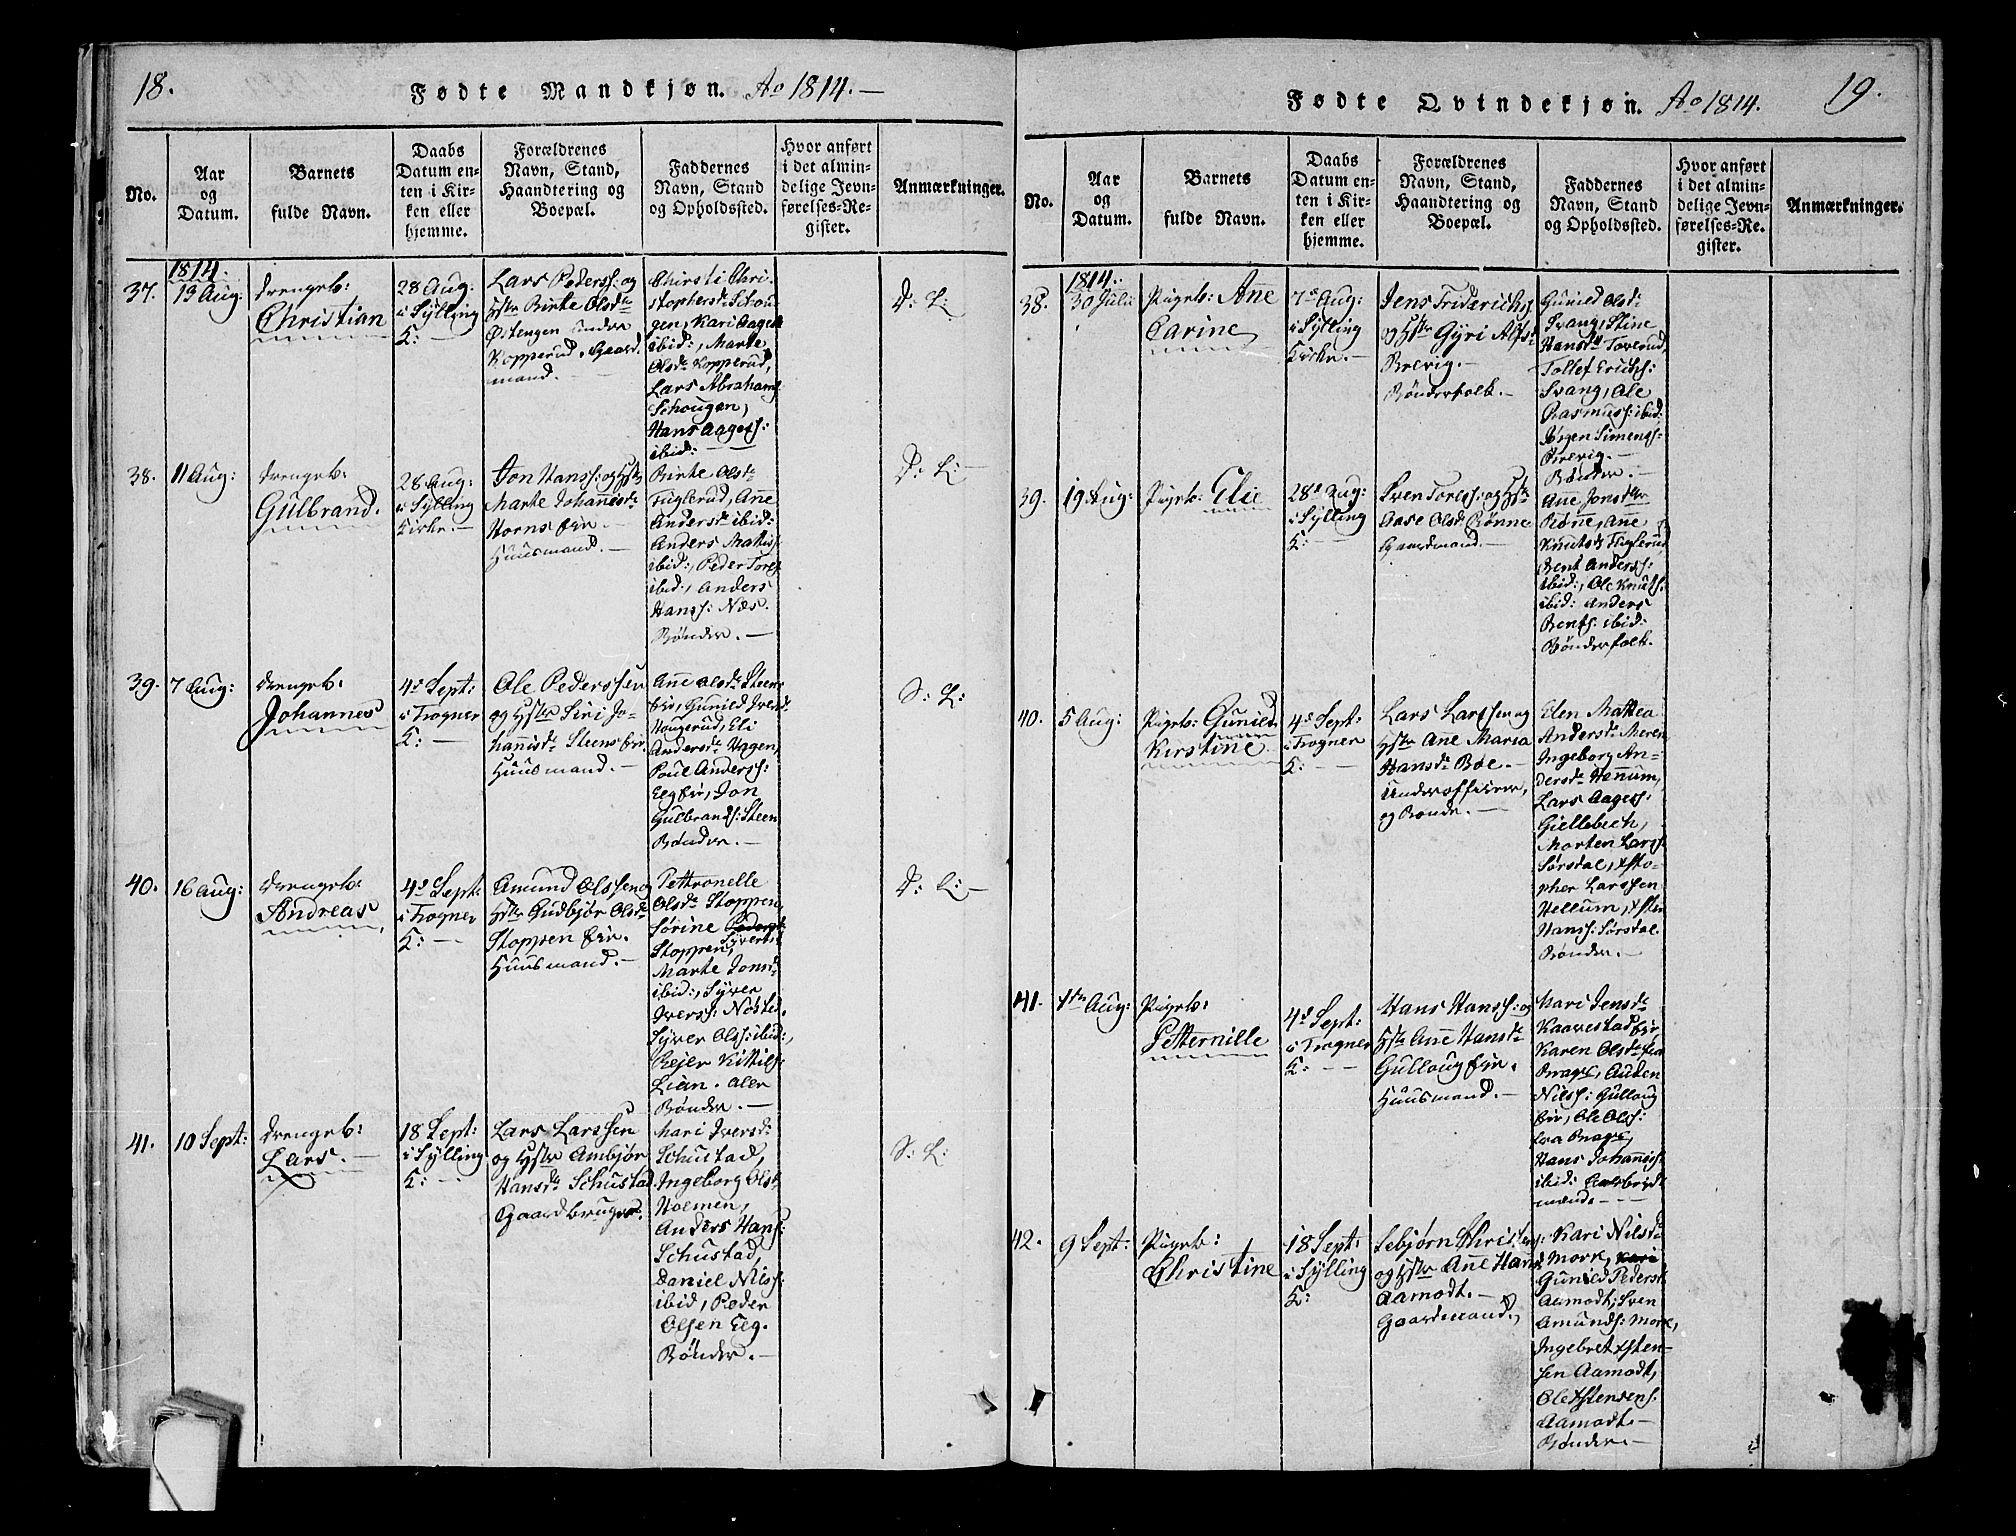 18.
Fødte Mandkjøn. Ao 1814.
No.
Aar
og
Datum.
Barnets
fulde Navn.
Daabs
Datum en-
ten i Kir-
ken eller
hjemme.
Forældrenes
Navn, Stand,
Haandtering og
Boepæl.
Faddernes
Navn, Stand
og Opholdssted.
Hvor anført
i det almin-
delige Jevn-
førelses-Re-
gister.
Anmærkninger.
1814.
37.
19 Aug:
Drengeb:
Christian
28 Aug:
i Sylling
K:
Lars Pederss: og
Hstr Birte Olsdr
Engen under
Kopperud. Gaard
mand.
Chirsti Chri-
stophersdr Schou
gen, Kari Aagesdr
ibid:, Marte
Olsdr Kopperud,
Lars Abrahams
Schougen,
Hans Aagess:
ibid:
D: L:
38.
11 Aug:
Drengeb:
Gulbrand.
28 Aug:
i Sylling
Kirke.
Jon Hanss: og Hstr
Marte Johannesdr
Horns Eie.
Huusmand.
Birte Olsdr
Fuglerud, Ane
Andersdr ibid:
Anders Mattis
ibid:, Peder Tores
ibid:, Anders
Hanss: Næs.
Bønder.
D: L:
39.
7 Aug:
Drengeb:
Johannes
4de Sept:
i Trogner
K:
Ole Pederssen
og Hstr Siri Jo-
hannisdr Steens Eie
Huusmand.
Ane Olsdr Steens
Eie, Gunild Iversdr
Hougerud, Eli
Andersdr Haagen,
Poul Anderss:
Elg Eie, Jon
Gulbrands: Steen
Bønder.
S: L:
40.
16 Aug:
Drengeb:
Andreas
4de Sept:
i Trogner
K:
Amund Olssen og
Hstr Gudbjør Olsdr
Stoppen Eie.
Huusmand.
Pettronelle
Olsdr Stoppen,
Sørine Pedersdr
Syvertsdr
Stoppen,
Marte Jonsdr
ibid:, Syver
Iverss: Nøsted,
Syver Olss: ibid:,
Reier Kittils:
Lian. alle
Bønder.
D: L:
41.
10 Sept:
Drengeb:
Lars.
18 Sept:
i Sylling
K:
Lars Larssen
og Hstr Ambjør
Hansdr Schustad
Gaardbruger.
Mari Iversdr
Schustad,
Ingeborg Olsdr
Holmen,
Anders Hans:
Schustad,
Daniel Nils:
ibid, Peder
Olsen Elg.
Bønder.
S: L:
Fødte Qvindekjøn. Ao 1814.
19.
No.
Aar
og
Datum.
Barnets
fulde Navn.
Daabs
Datum en-
ten i Kir-
ken eller
hjemme.
Forældrenes
Navn, Stand,
Haandtering og
Boepæl.
Faddernes
Navn, Stand
og Opholdssted.
Hvor anført
i det almin-
delige Jevn-
førelses-Re-
gister.
Anmærkninger.
1814.
38.
30 Juli
Pigeb: Ane
Carine
7de Aug:
i Sylling
Kirke.
Jens Friderichs
og Hstr Gyri Alfsdr
Brevig.
Bønderfolk.
Gunild Olsdr
Svang, Stine
Hansdr Toverud,
Tollef Erichs:
Svang, Ole
Rasmuss: ibid:
Jørgen Simens:
Brevig.
Bønder.
39.
19 Aug:
Pigeb: Elie
28de Aug:
i Sylling
K:
Sven Toress: og Hstr
Aase Olsdr Rønne
Gaardmand.
Ane Jonsdtr
Rønne, Ane
Knutsdr Fuglerud
Bent Anderss:
ibid:, Ole Knuts:
ibid: Anders
Bents: ibid:
Bønderfolk.
40.
5 Aug:
Pigeb: Gunild
Kirstine
4de Sept:
i Trogner
K:
Lars Larssen og
Hstr Ane Maria
Hansdr Bøe.
Underofficeer,
og Bonde.
Elen Mattea
Andersdr Meren
Ingeborg An-
dersdr Henum,
Lars Aagess:
Gjellebech,
Morten Larss:
Sørsdal, Xsto-
pher Larssen
Hellum, Xsten
Hanss: Sørsdal.
Bønder.
41.
1ste Aug:
Pigeb:
Petternille
4de Sept:
i Trogner
K:
Hans Hanss: og
Hstr Ane Hansdr
Gulloug Eie.
Huusmand.
Mari Jensdr
Kaarestad Eie
Karen Olsdr fra
Brages, Auden
Nilss: Gulloug
Eie, Ole Olss:
fra Brages,
Hans Johaness:
ibid:
42.
9 Sept:
Pigeb:
Christine
18 Sept:
i Sylling
K:
Lebjørn Christens:
og Hstr Ane Hansdr
Aamodt.
Gaardmand.
Kari Nilsdr
Mork, Kari
Gunild Pedersdr
Aamodt, Sven
Amunds: Mork,
Ingebret Xsten-
sen Aamodt,
Ole Xstensens:
Aamodt.
Bønder.